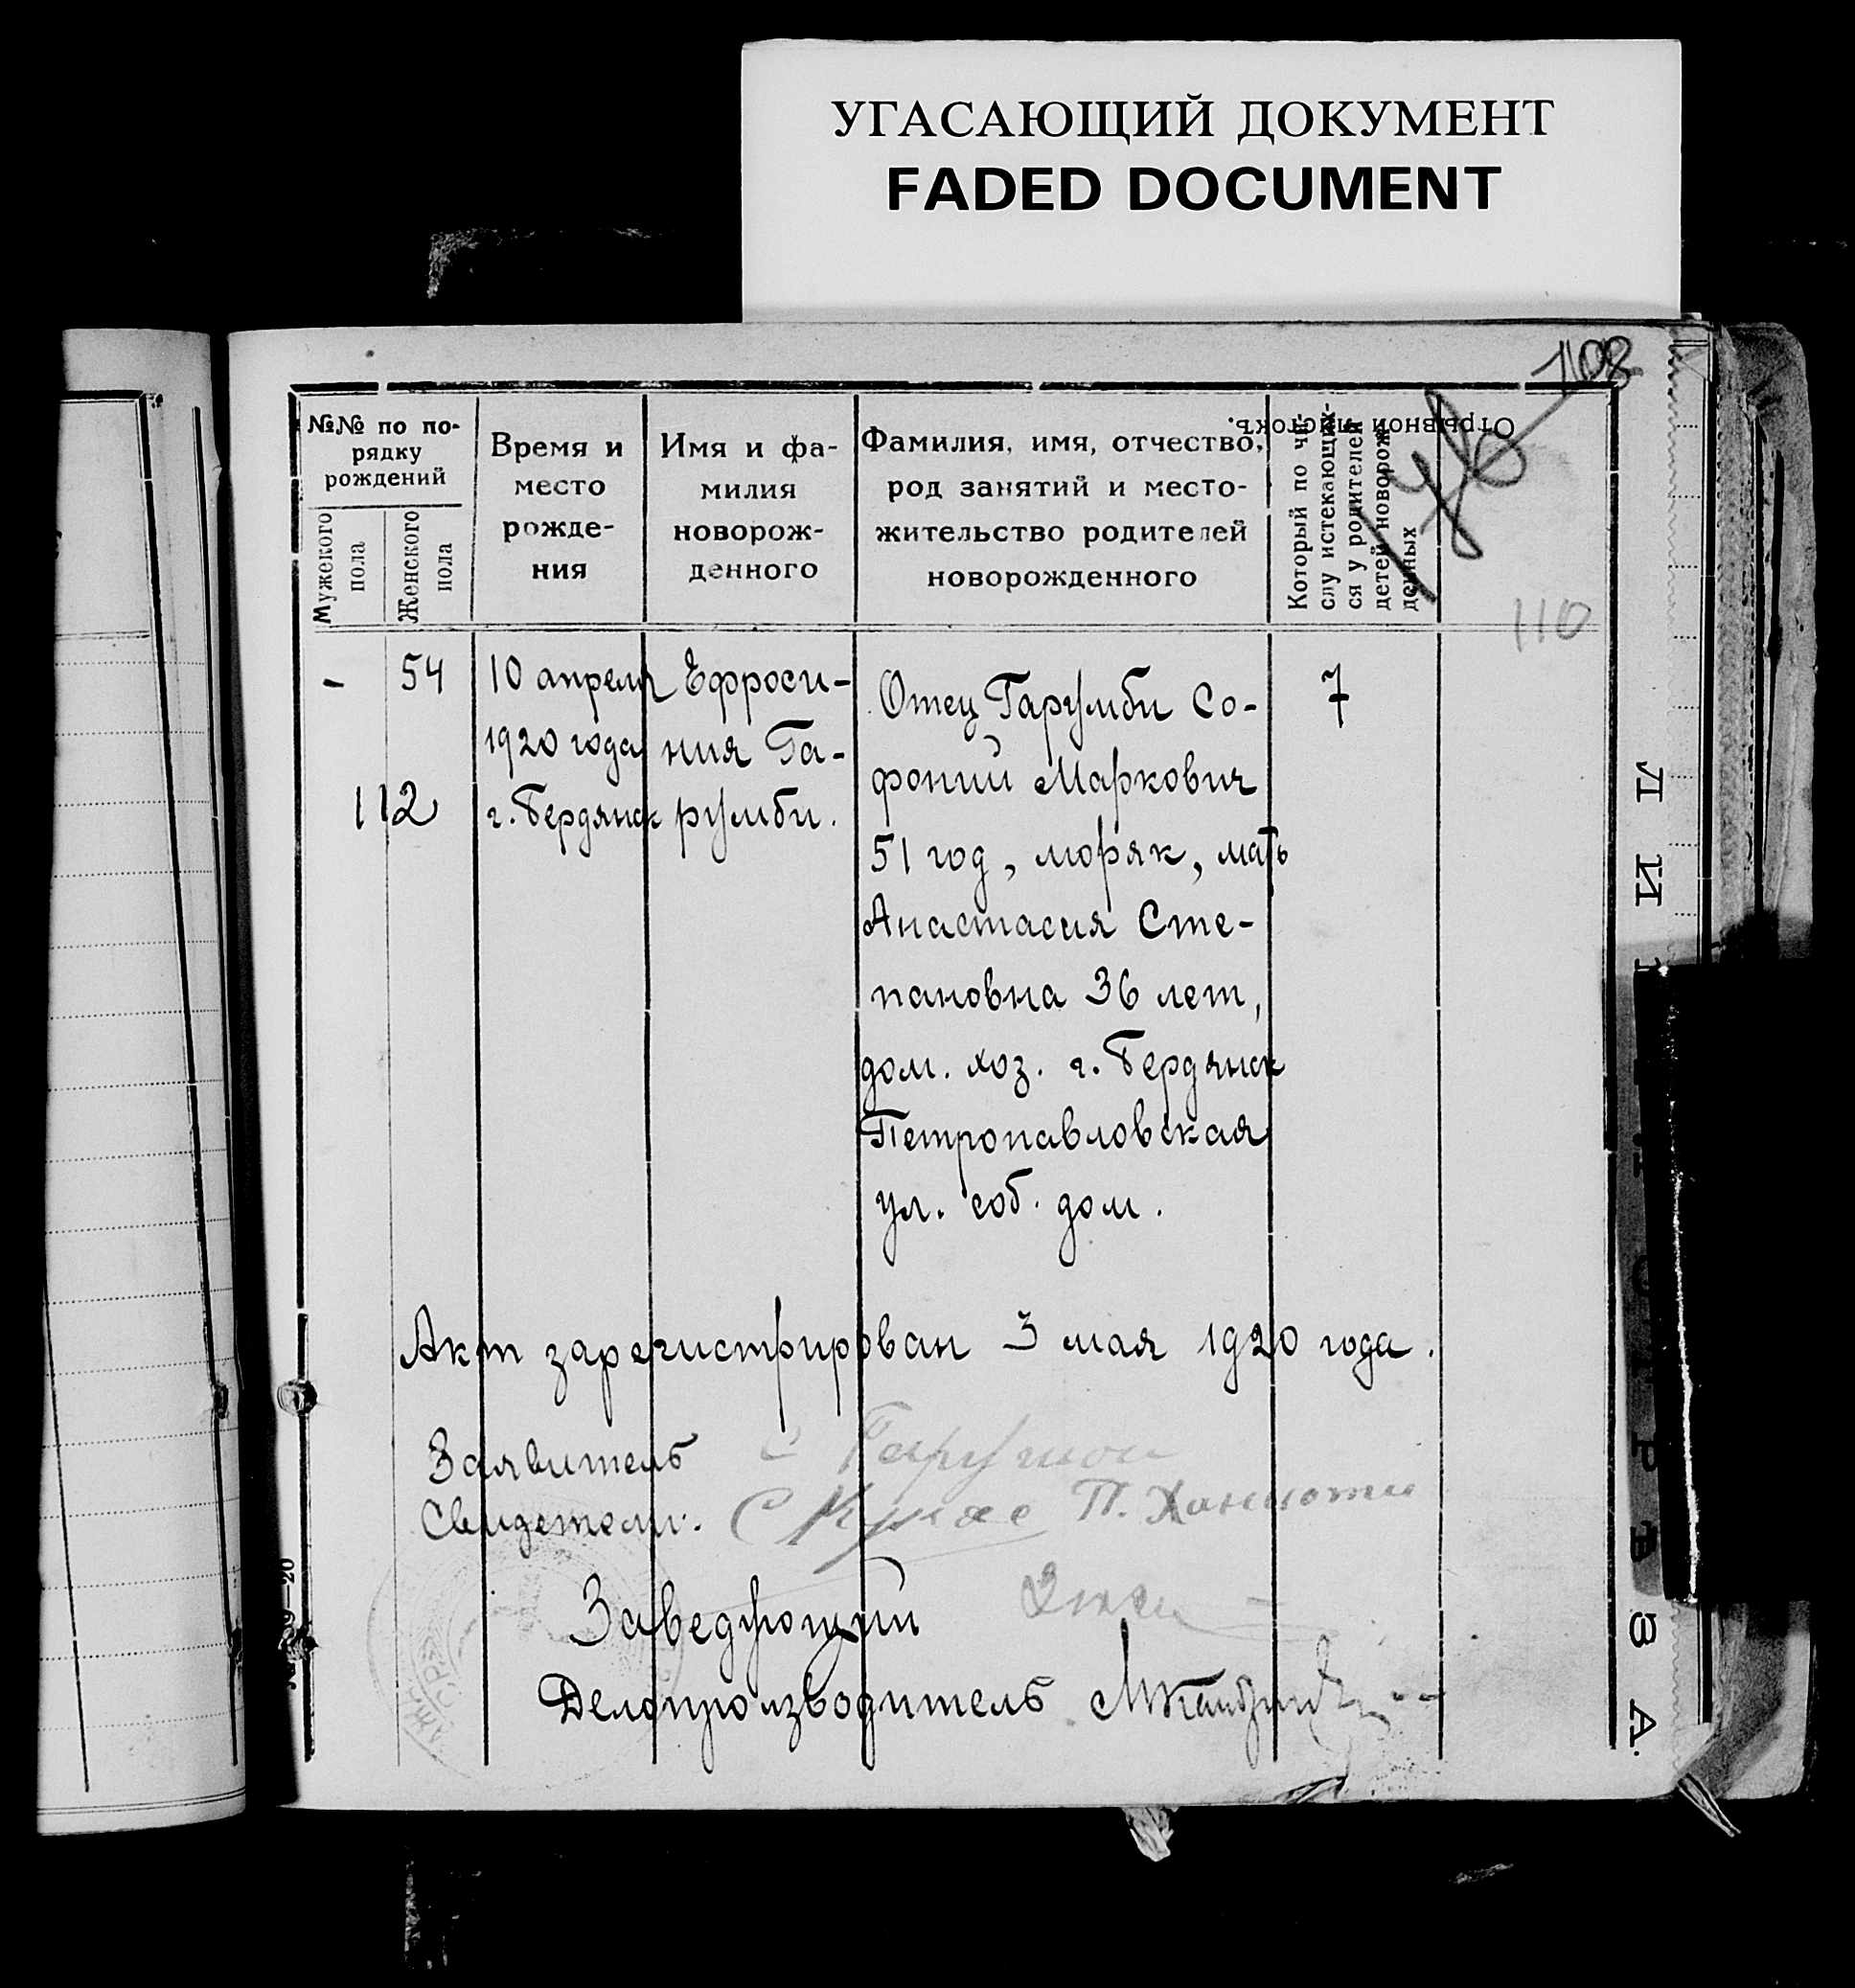 УГАСАЮЩИЙ ДОКУМЕНТ
FADED DOCUMENT
108
110
Отрывной листокъ.
№№ по по-
рядку
рождений
Мужеского
пола
Женского
пола
Время и
место
рожде-
ния
Имя и фа-
милия
новорож-
денного
Фамилия, имя, отчество,
род занятий и место-
жительство родителей
новорожденного
Который по чи-
слу истекающих-
ся у родителей
детей новорож-
денных
- 54
112
10 апреля
1920 года
г. Бердянск
Ефроси-
ния Га-
румби.
Отец Гарумби Со-
фоний Маркович
51 год, моряк, мать
Анастасия Сте-
пановна 36 лет,
дом. хоз. г. Бердянск
Петропавловская
ул. соб. дом.
7
Акт зарегистрирован 3 мая 1920 года.
Заявитель
Свидетели. П.
Заведующий
Делопроизводитель